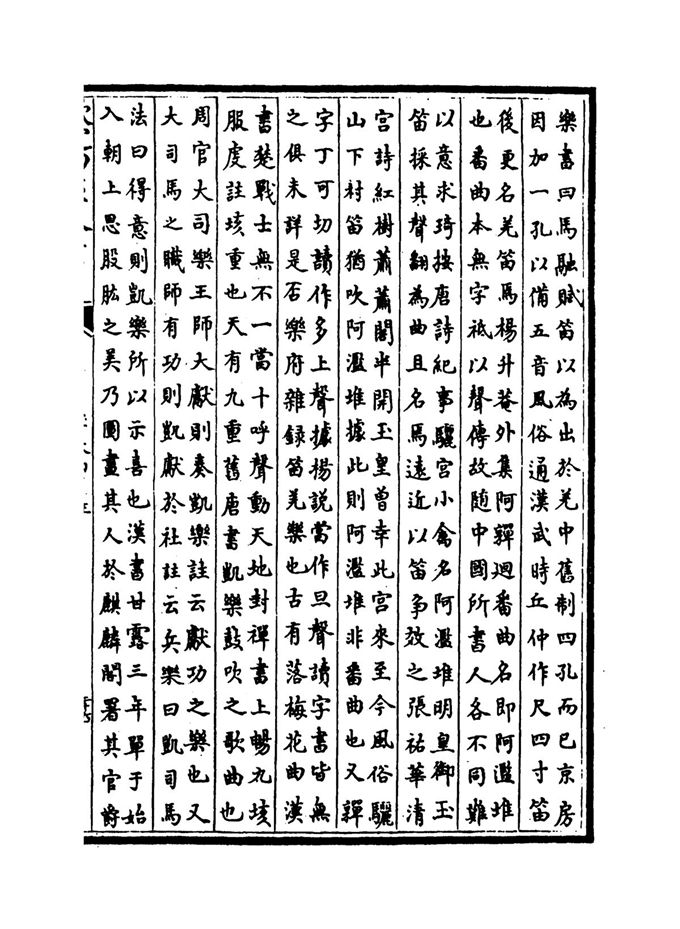 樂書曰馬融賦笛以為出於羌中舊制四孔而已京房
因加一孔以備五音風俗通漢武時丘仲作尺四寸笛
後更名羌笛焉楊升菴外集阿嚲迴番曲名即阿濫堆
也番曲本無字祗以聲傳故隨中國所書人各不同難
以意求琦按唐詩紀事驪宫小禽名阿濫堆明皇御玉
笛採其聲翻為曲且名焉遠近以笛爭效之張祐華清
宫詩紅樹蕭蕭閣半開玉皇曾幸此宫來至今風俗驪
山下村笛猶吹阿濫堆據此則阿濫堆非番曲也又嚲
字丁可切讀作多上聲據楊説當作旦聲讀字書皆無
之俱未詳是否樂府雜録笛羌樂也古有落梅花曲漢
書楚戰士無不一當十呼聲動天地封禪書上暢九垓
服虔註垓重也天有九重舊唐書凱樂鼓吹之歌曲也
周官大司樂王師大獻則奏凱樂註云獻功之樂也又
大司馬之職師有功則凱獻於社註云兵樂曰凱司馬
法曰得意則凱樂所以示喜也漢書甘露三年單于始
入朝上思股肱之美乃圖畫其人於麒麟閣署其官爵